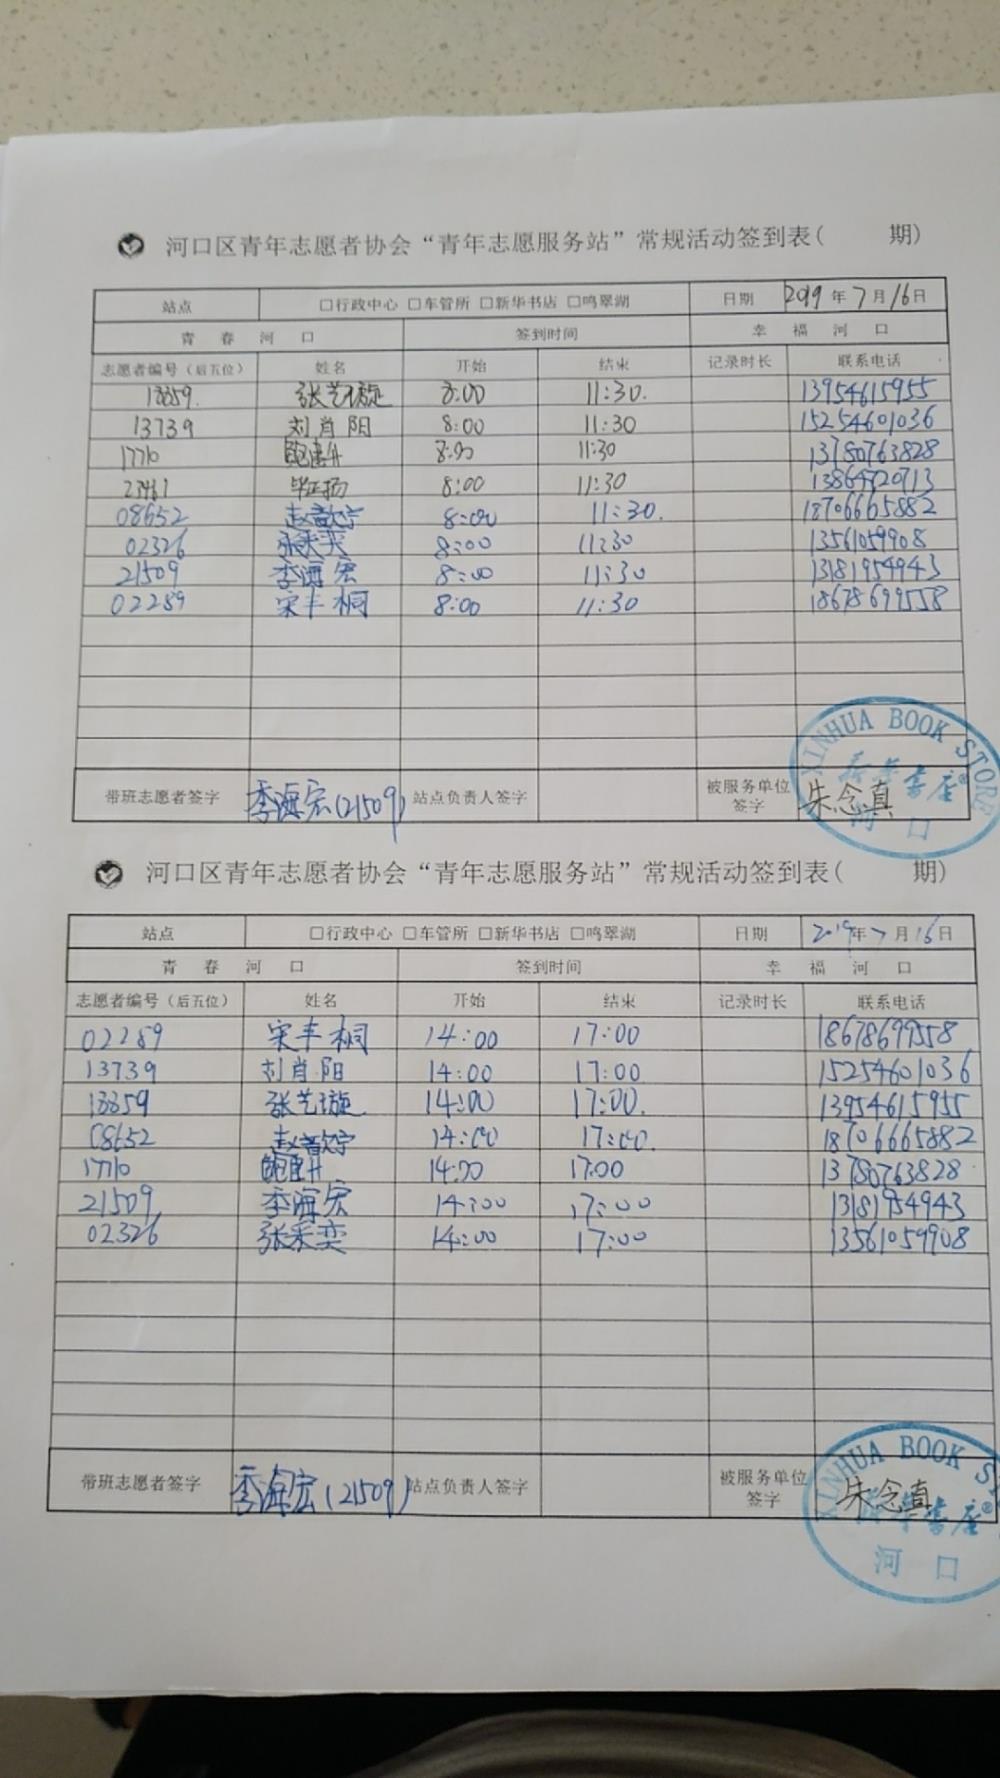 河口区青年志愿者协会“青年志愿服务站”常规活动签到表( 期)
站点 □行政中心 □车管所 □新华书店 □鸣翠湖 日期 2019年7月16日
青春河口 签到时间 幸福河口
志愿者编号(后五位) 姓名 开始 结束 记录时长 联系电话
13859. 张艺璇 8:00 11:30. 13954615955
13739 刘肖阳 8:00 11:30 15254601036
17710 鲍建升 8:00 11:30 13780763828
毕正扬 8:00 11:30
08652 赵歆宁 8:00 11:30. 18706665882
02326 张采奕 8:00 11:30 13561059908
21509 李海宏 8:00 11:30 13181954943
02289 宋丰桐 8:00 11:30 18678699558
XINHUA BOOK STORE
新华书店®
河口
带班志愿者签字 李海宏(21509) 站点负责人签字 被服务单位签字 朱念真
河口区青年志愿者协会“青年志愿服务站”常规活动签到表( 期)
站点 □行政中心 □车管所 □新华书店 □鸣翠湖 日期 2019年7月16日
青春河口 签到时间 幸福河口
志愿者编号(后五位) 姓名 开始 结束 记录时长 联系电话
02289 宋丰桐 14:00 17:00 18678699558
13739 刘肖阳 14:00 17:00 15254601036
13859 张艺璇 14:00 17:00. 13954615955
08652 赵歆宁 14:00 17:00. 18706665882
17710 鲍建升 14:00 17:00 13780763828
21509 李海宏 14:00 17:00 13181954943
02326 张采奕 14:00 17:00 13561059908
XINHUA BOOK ST
新华书店®
河口
带班志愿者签字 李海宏(21509) 站点负责人签字 被服务单位签字 朱念真